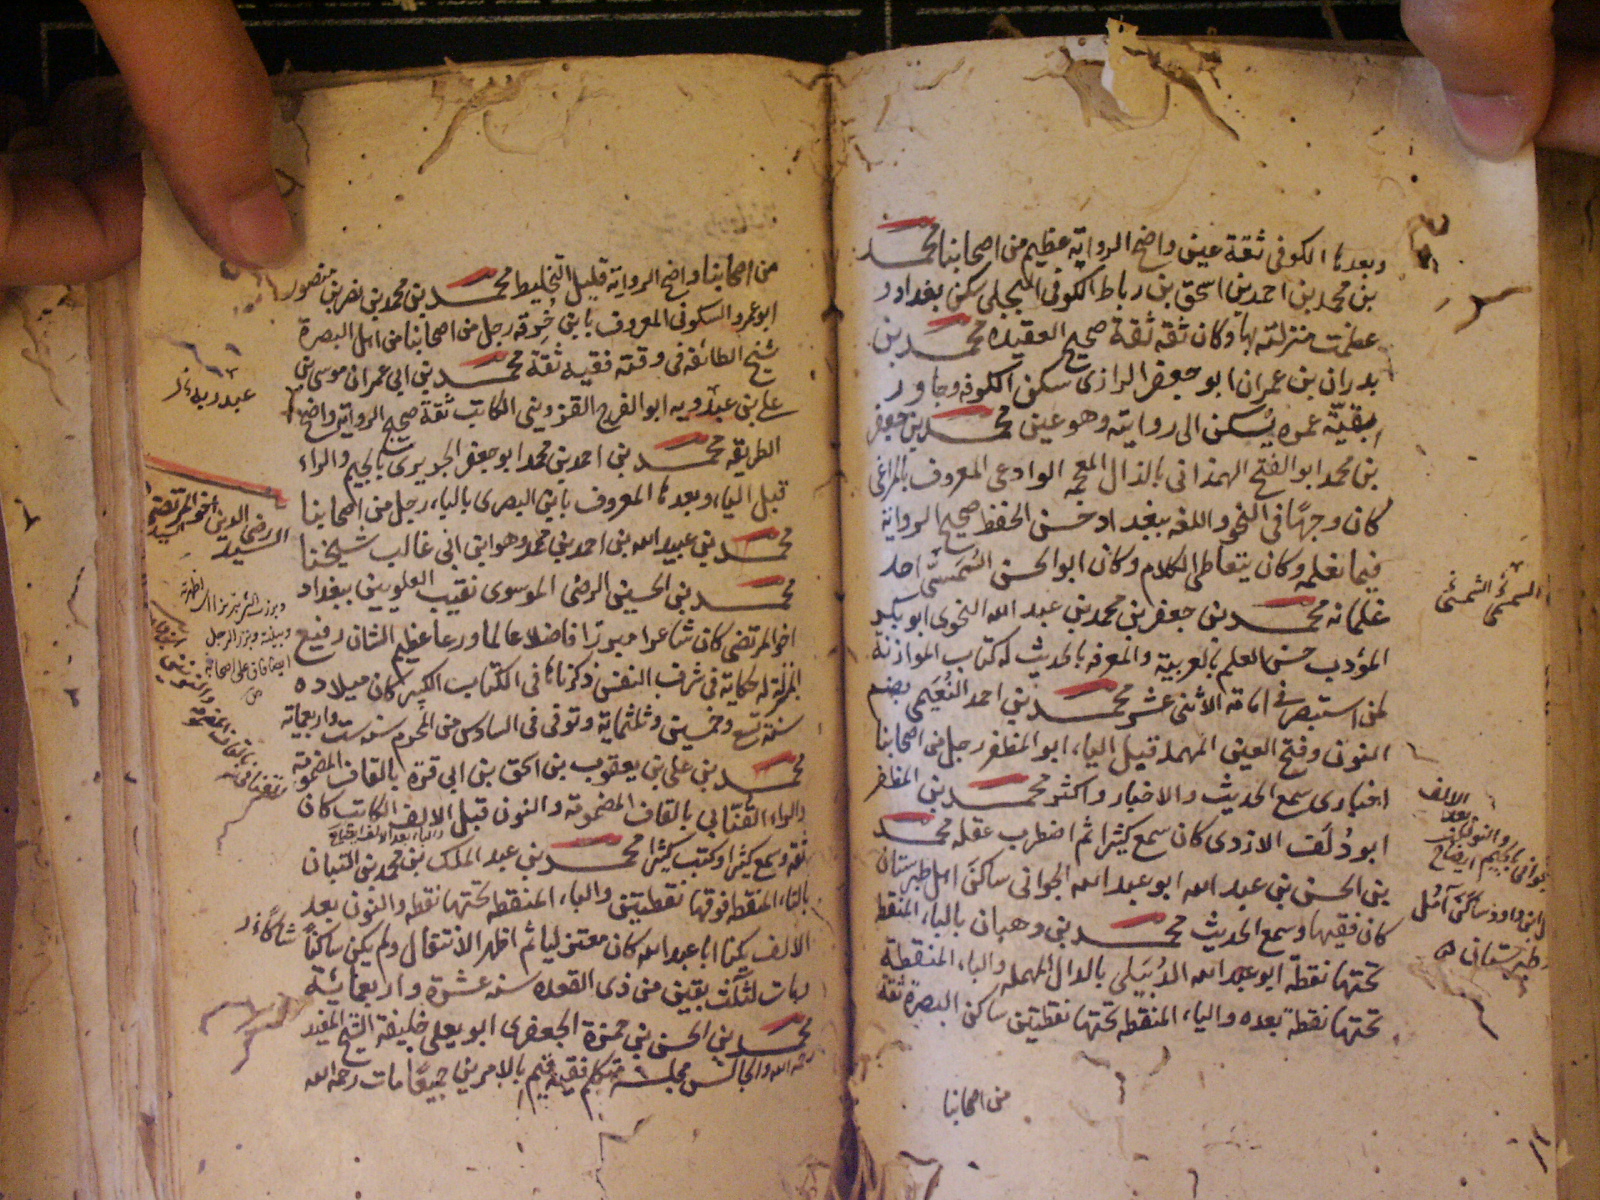 وبعدها الكوفى ثقة عين واضح الرواية عظيم من اصحابنا محمد
بن محمد بن احمد بن اسحق بن رباط الكوفى البجلى سكن بغداد و
عظمت منزلته بها وكان ثقة ثقة صحيح العقيده محمد بن
بدران بن عمران ابو جعفر الرازى سكن الكوفه وجاور
بقيّة عمره يسكن الى روايته وهو عين محمد بن جعفر
بن محمد ابو الفتح الهمذانى بالذال المعجمه الوادعى المعروف بالمراغى
كان وجها فى النحو واللغه ببغداد حسن الحفظ صحيح الرواية
فيما نعلمه وكان يتعاطى الكلام وكان ابو الحسن السمسمى احد
غلمانه محمد بن جعفر بن محمد بن عبد الله النحوى ابو بكر
المؤدب حسن العلم بالعربية والمعرفه بالحديث له كتاب الموازنة
لمن استبصر فى امامة الاثنى عشر محمد بن احمد النعيمى بضم
النون وفتح العين المهملة قبل الياء ابو المظفر رجل من اصحابنا
اخبارى سمع الحديث والاخبار واكثر محمد بن المظفر
ابو دُلَف الازدى كان سمع كثيرا ثم اضطرب عقله محمد
بن الحسن بن عبد الله ابو عبد الله الجوانى ساكن امل طبرستان
كان فقيها وسمع الحديث محمد بن وهبان بالباء المنقطة
تحتها نقطة ابو عبد الله الدبيلى بالدال المهمله والباء المنقطة
تحتها نقطة بعده والياء المنقطه تحتها نقطتين ساكن البصرة ثقة
من اصحابنا
الالف
والنون
بالجيم
ساكن آمُل
طبرستان
من اصحابنا واضح الرواية قليل التخليط محمد بن محمد بن نصر بن منصور
ابو عمرو السكونى المعروف بابن خرقه رجل من اصحابنا من اهل البصرة
شيخ الطائفه فى وقته فقيه ثقة محمد بن ابى عمران موسى بن
على بن عبدويه ابو الفرج القزوينى الكاتب ثقة صحيح الرواية واضح
الطريقه محمد بن احمد بن محمد ابو جعفر الجريرى بالجيم والراء
قبل الياء وبعدها المعروف بابن البصرى بالباء رجل من اصحابنا
محمد بن عبيد الله بن احمد بن محمد وهو ابن ابى غالب شيخنا
محمد بن الحسين الرضى الموسوى نقيب العلويين ببغداد
اخو المرتضى كان شاعرا مبرزا فاضلا عالما ورعا عظيم الشان رفيع
المنزلة له حكاية فى شرف النفس ذكرناها فى الكتاب الكبير كان ميلاده
سنة تسع وخمسين وثلثماية وتوفى فى السادس من المحرم سنه ست واربعمائة
محمد بن على بن يعقوب بن اسحق بن ابى قرة بالقاف المضمومة
والراء القُنّابى بالقاف المضمومة والنون قبل الالف الكاتب كان
ثقة وسمع كثيرا وكتب كثيرا محمد بن عبد الملك بن محمد بن التبان
بالتاء المنقطه فوقها نقطتين والباء المنقطه تحتها نقطه والنون بعد
الالف يكنا ابا عبد الله كان معتزليا ثم اظهر الانتقال ولم يكن ساكنا
ومات لثلث بقين من ذى القعده سنه عشرة واربعمائة
محمد بن الحسن بن حمزة الجعفرى ابو يعلى خليفة الشيخ المفيد
رحمه الله والجالس مجلسه متكلم فقيه قيم بالامرين جميعًا مات رحمه الله
عبد ربه
السيد الرضى الدين
اخو المرتضى